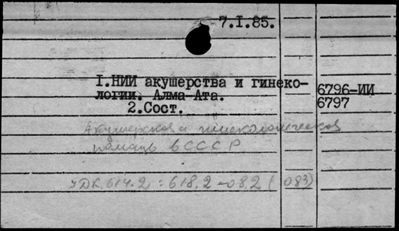 7.I.85.
I.НИИ акушерства и гинеко-
логии. Алма-Ата.
6796-ИИ
6797
2.Сост.
Акушерская и гинекологическая
помощь в СССР
УДК 614.2 : 618.2-082 (083)